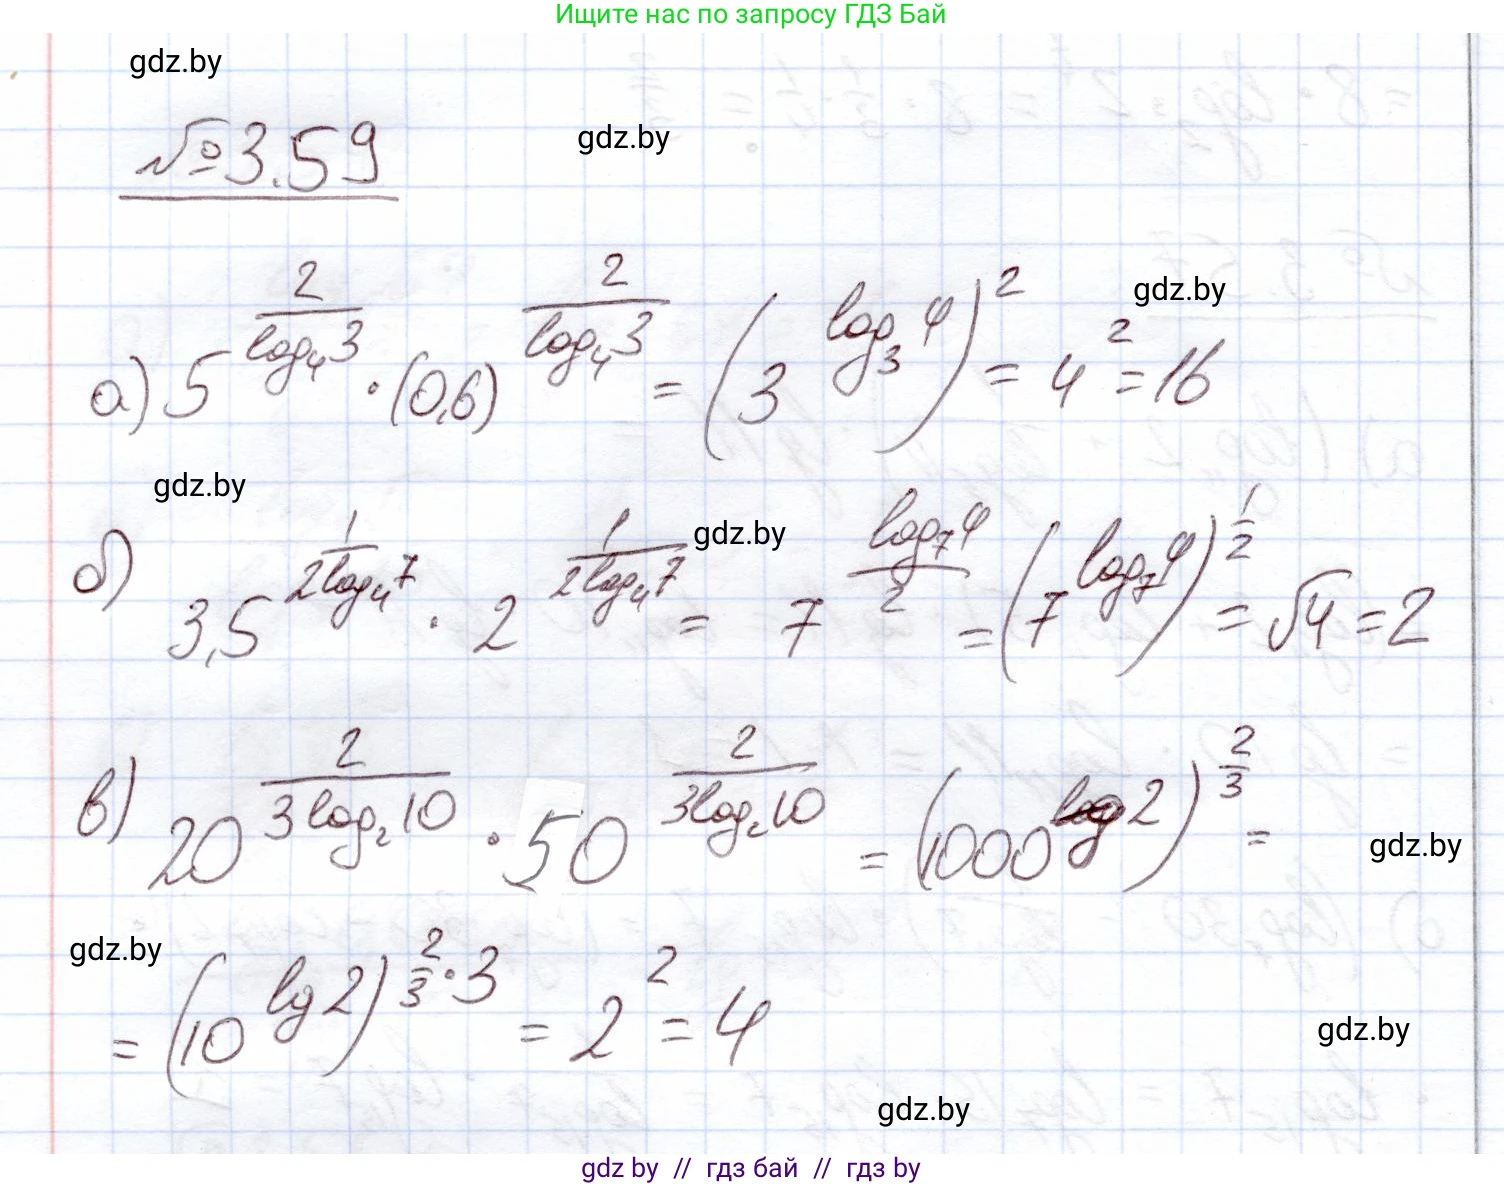 Ищите нас по запросу ГДЗ Бай
gdz.by
№3.59
gdz.by
gdz.by
а) 5^(2/log₄3) · (0,6)^(2/log₄3) = (3^(log₃4))² = 4² = 16
gdz.by
gdz.by
б) 3,5^(1/(2log₄7)) · 2^(1/(2log₄7)) = 7^(log₇4/2) = (7^(log₇4))^(1/2) = √4 = 2
в) 20^(2/(3log₂10)) · 50^(2/(3log₂10)) = (1000^(lg2))^(2/3) =
gdz.by
gdz.by
= (10^(lg2))^(2/3·3) = 2² = 4
gdz.by
gdz.by
gdz by // гдз бай // гдз by